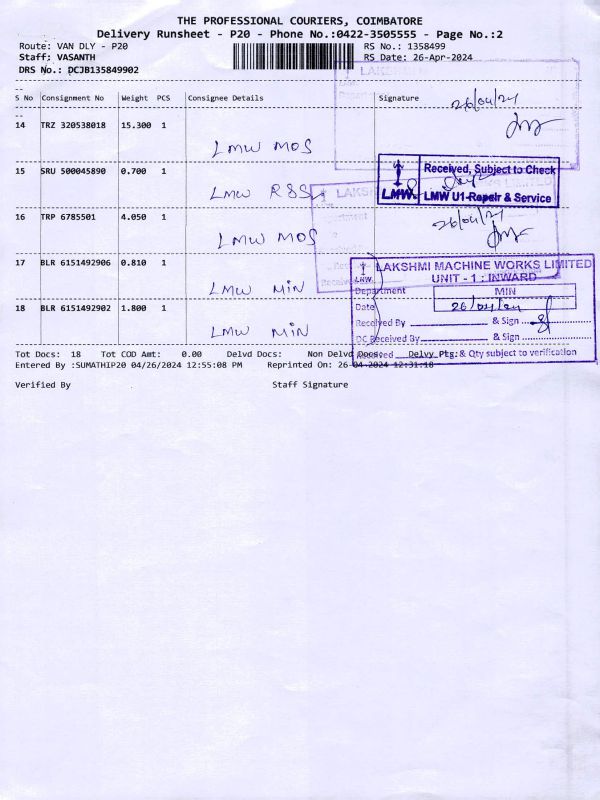 THE PROFESSIONAL COURIERS, COIMBATORE
Delivery Runsheet - P20 - Phone No.:0422-3505555 - Page No.:2
Route: VAN DLY - P20 RS No.: 1358499
Staff: VASANTH RS Date: 26-Apr-2024
DRS No.: DCJB135849902
S No Consignment No Weight PCS Consignee Details Signature
26/04/24
14 TRZ 320538018 15.300 1
LMW MOS
15 SRU 500045890 0.700 1
Received, Subject to Check
LMW LMW U1-Repair & Service
LMW RSS
16 TRP 6785501 4.050 1
26/04/24
LMW MOS
17 BLR 6151492906 0.810 1
LAKSHMI MACHINE WORKS LIMITED
UNIT - 1 : INWARD
LMW MIN
Department MIN
18 BLR 6151492902 1.800 1
Date 26/04/24
Received By & Sign
LMW MIN
DC Received By & Sign
Tot Docs: 18 Tot COD Amt: 0.00 Delvd Docs: Non Delvd Docs: Delvy Ptg:
Received & Qty subject to verification
Entered By :SUMATHIP20 04/26/2024 12:55:08 PM Reprinted On: 26-04-2024 12:31:18
Verified By Staff Signature